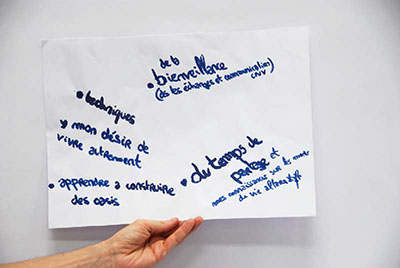 de la
• bienveillance
(ds les échanges et communication)
CNV
• techniques
» mon désir de
vivre autrement
• apprendre à construire
des oasis
• du temps de
partage et
connaissances sur les
de vie alternatifs